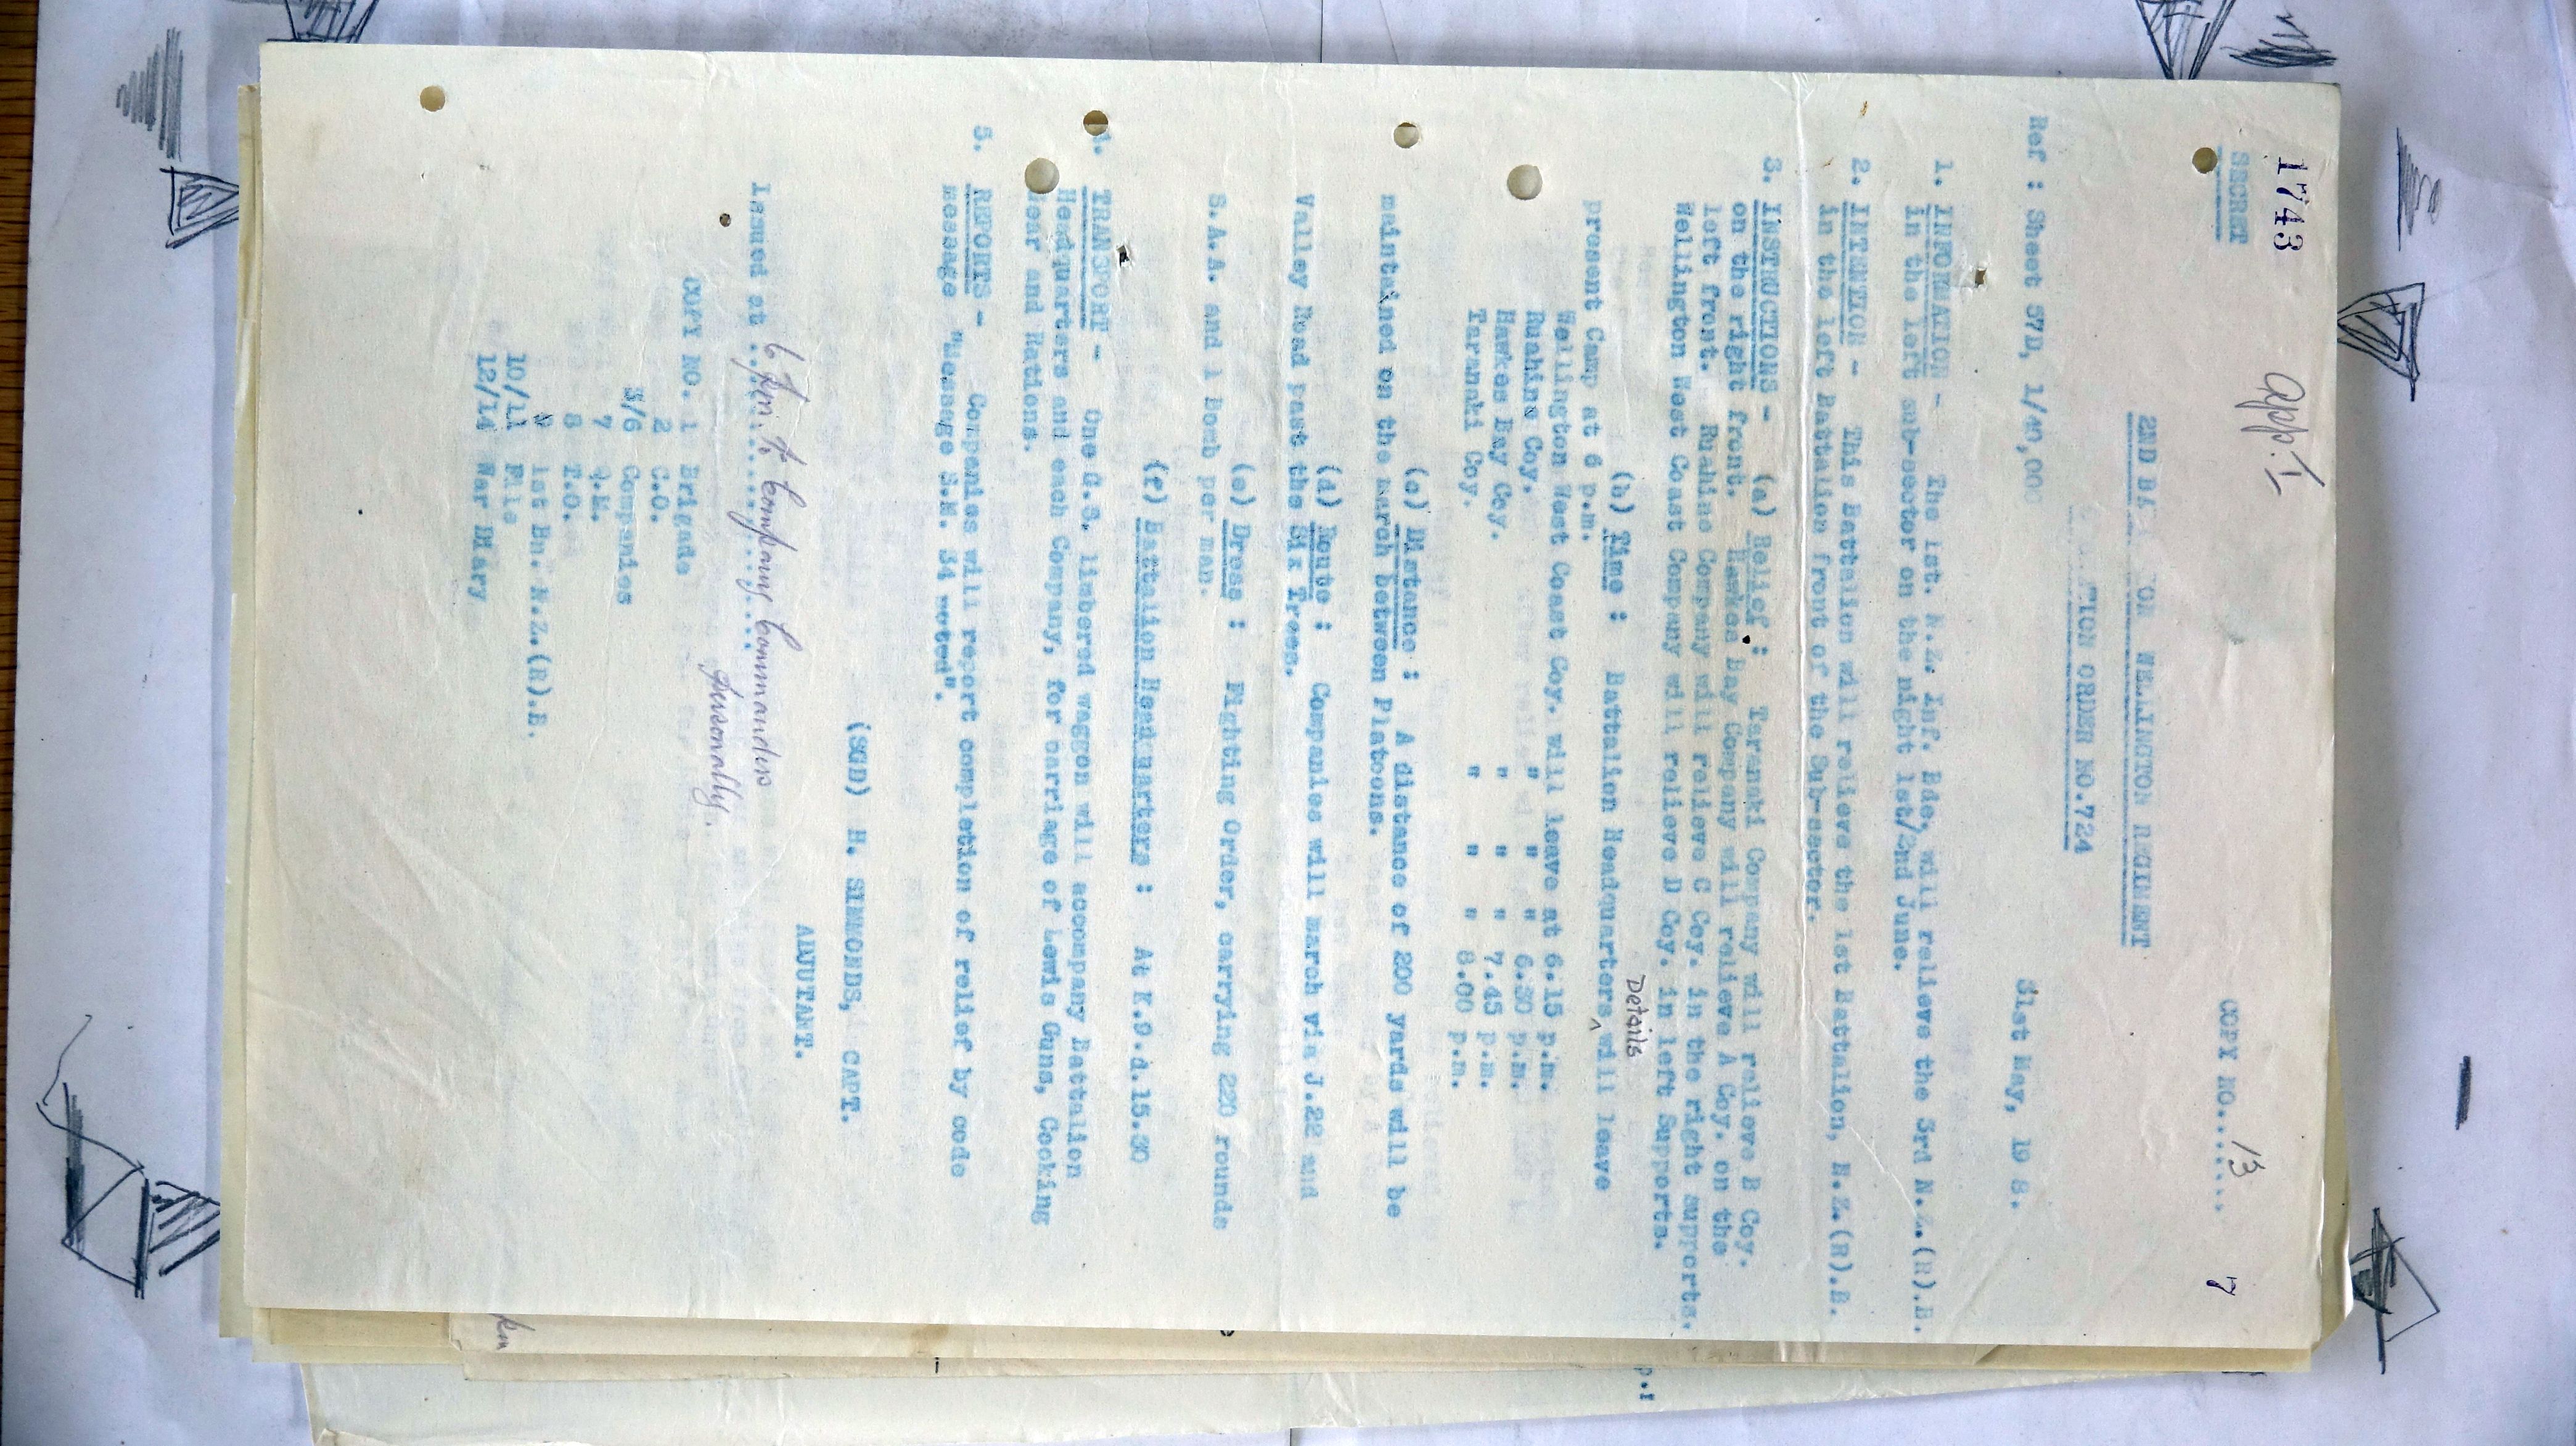 1743
app. 1
SECRET
COPY NO. 13
7
2ND BA OR WELLINGTON REGIMENT
ATION ORDER NO.724
Ref : Sheet 57D, 1/40,000
31st May, 19 8.
1. INFORMATION - The 1st. N.Z. Inf. Bde. will relieve the 3rd N.Z.(R).B.
in the left sub-sector on the night 1st/2nd June.
2. INTENTION - This Battalion will relieve the 1st Battalion, N.Z.(R).B.
in the left Battalion front of the Sub-sector.
3. INSTRUCTIONS - (a) Relief : Taranaki Company will relieve B Coy.
on the right front. Hawkes Bay Company will relieve A Coy. on the
left front. Ruahine Company will relieve C Coy. in the right supports.
Wellington West Coast Company will relieve D Coy. in left Supports.
(b) Time : Battalion Headquarters Details will leave
present Camp at 6 p.m.
Wellington West Coast Coy. will leave at 6.15 p.m.
Ruahine Coy. " " " 6.30 p.m.
Hawkes Bay Coy. " " " 7.45 p.m.
Taranaki Coy. " " " 8.00 p.m.
(c) Distance : A distance of 200 yards will be
maintained on the march between Platoons.
(d) Route : Companies will march via J.22 and
Valley Road past the Six Trees.
(e) Dress : Fighting Order, carrying 220 rounds
S.A.A. and 1 Bomb per man.
(f) Battalion Headquarters : At K.9.d.15.30
4. TRANSPORT - One G.S. limbered waggon will accompany Battalion
Headquarters and each Company, for carriage of Lewis Guns, Cooking
Gear and Rations.
5. REPORTS - Companies will report completion of relief by code
message "Message S.N. 34 noted".
(SGD) H. SIMMONDS, CAPT.
ADJUTANT.
Issued at 6 p.m. to Company Commanders
personally.
COPY NO. 1 Brigade
2 C.O.
3/6 Companies
7 Q.M.
8 T.O.
9 1st Bn. N.Z.(R).B.
10/11 File
12/14 War Diary